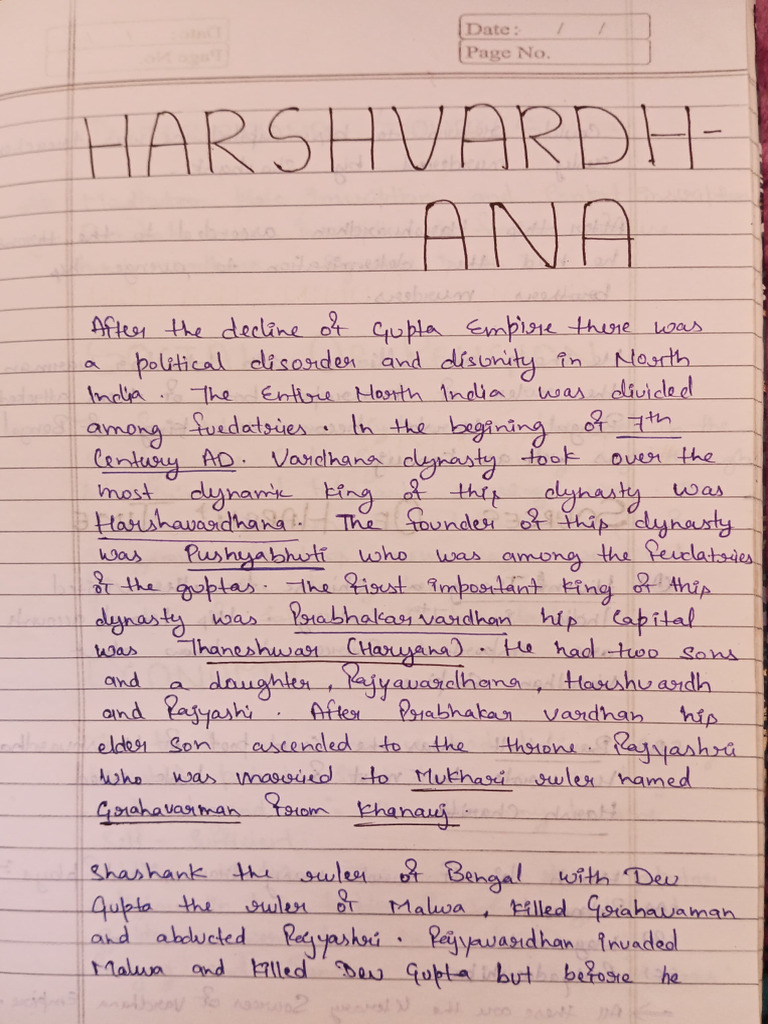 Date: / /
Page No.
HARSHVARDH-
ANA
After the decline of Gupta Empire there was
a political disorder and disunity in North
India. The Entire North India was divided
among fuedatries. In the begining of 7th
Century AD. Vardhana dynasty took over the
most dynamic king of this dynasty was
Harshavardhana. The founder of this dynasty
was Pushyabhuti who was among the feudatries
of the guptas. The first important king of this
dynasty was Prabhakarvardhan his capital
was Thaneshwar (Haryana). He had two sons
and a daughter, Rajyavardhana, Harshvardh
and Rajyashi. After Prabhakar vardhan his
elder son ascended to the throne. Rajyashri
who was married to Mukhari ruler named
Grahavarman from Khanauj.
Shashank the ruler of Bengal with Dev
Gupta the ruler of Malwa, killed Grahavaman
and abducted Rajyashri. Rajyavardhan invaded
Malwa and killed Dev Gupta but before he